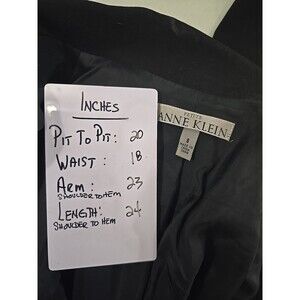 INCHES
PIT TO PIT: 20
WAIST: 18
ARM: 23
SHOULDER TO HEM
LENGTH: 24
SHOULDER TO HEM
PETITE
ANNE KLEIN